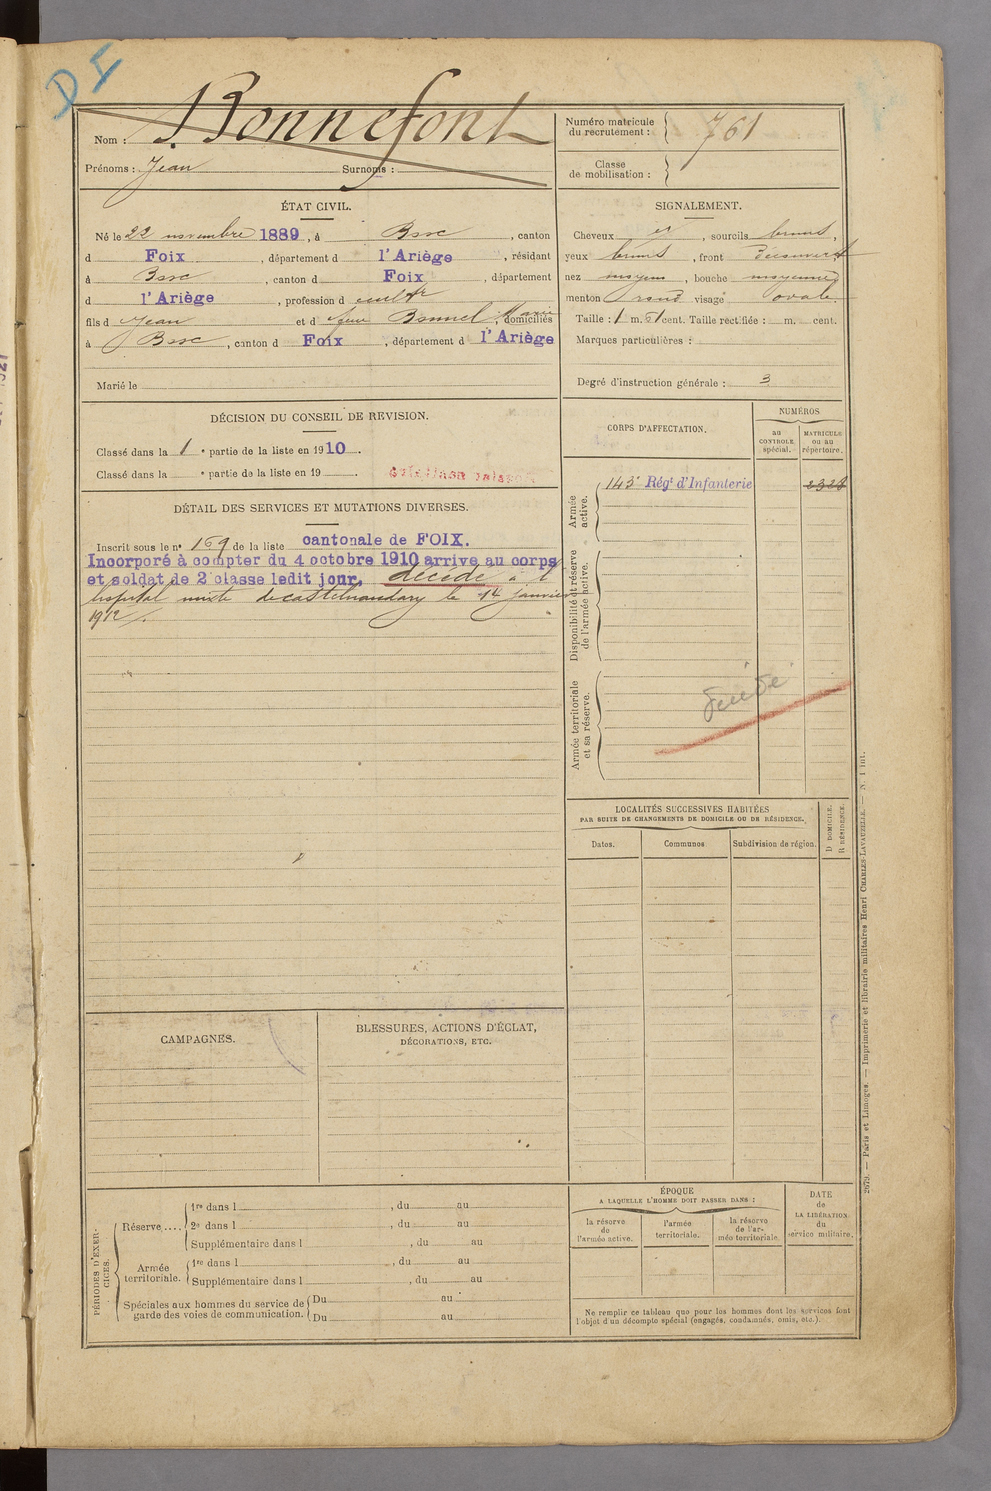 D I
Nom : Bonnefont
Prénoms : Jean Surnoms :
Numéro matricule du recrutement : 761
Classe de mobilisation :
ÉTAT CIVIL.
Né le 22 novembre 1889, à Bosc, canton
d Foix, département d l'Ariège, résidant
à Bosc, canton d Foix, département
d l'Ariège, profession d cultr
fils d Jean et d feue Bonnel Marie, domiciliés
à Bosc, canton d Foix, département d l'Ariège
Marié le
SIGNALEMENT.
Cheveux et, sourcils bruns,
yeux bruns, front découvert
nez moyen, bouche moyenne
menton rond visage ovale.
Taille : 1 m. 61 cent. Taille rectifiée : m. cent.
Marques particulières :
Degré d'instruction générale : 3
DÉCISION DU CONSEIL DE REVISION.
Classé dans la 1e partie de la liste en 1910.
Classé dans la e partie de la liste en 19 .
DÉTAIL DES SERVICES ET MUTATIONS DIVERSES.
Inscrit sous le no 169 de la liste cantonale de FOIX.
Incorporé à compter du 4 octobre 1910 arrive au corps
et soldat de 2e classe ledit jour, décédé à l
hopital mixte de castelnaudary le 14 janvier
1912.
CORPS D'AFFECTATION.
NUMÉROS
au CONTROLE spécial.
MATRICULE ou au répertoire.
Armée active.
143e Régt d'Infanterie 2328
Disponibilité et réserve de l'armée active.
Armée territoriale et sa réserve.
LOCALITÉS SUCCESSIVES HABITÉES
PAR SUITE DE CHANGEMENTS DE DOMICILE OU DE RÉSIDENCE.
Dates. Communes Subdivision de région.
D DOMICILE.
R RÉSIDENCE.
CAMPAGNES.
BLESSURES, ACTIONS D'ÉCLAT,
DÉCORATIONS, ETC.
PÉRIODES D'EXERCICES.
Réserve....
1re dans l , du au
2e dans l , du au
Supplémentaire dans l , du au
Armée territoriale.
1re dans l , du au
Supplémentaire dans l , du au
Spéciales aux hommes du service de garde des voies de communication.
Du au
Du au
ÉPOQUE
A LAQUELLE L'HOMME DOIT PASSER DANS :
la réserve de l'armée active.
l'armée territoriale.
la réserve de l'armée territoriale.
DATE de LA LIBÉRATION du service militaire.
Ne remplir ce tableau que pour les hommes dont les services font
l'objet d'un décompte spécial (engagés, condamnés, omis, etc.).
2679. — Paris et Limoges. — Imprimerie et librairie militaires Henri CHARLES-LAVAUZELLE. — N. 1 int.